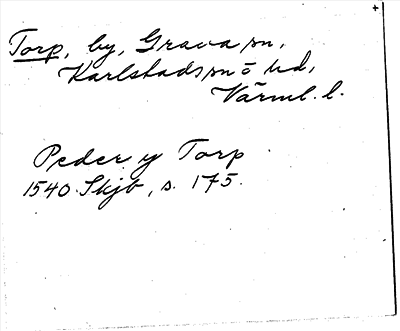 Torp, by, Grava sn,
Karlstads sn o hd,
Värml. l.
Peder y Torp
1540 Skjb, s. 175.